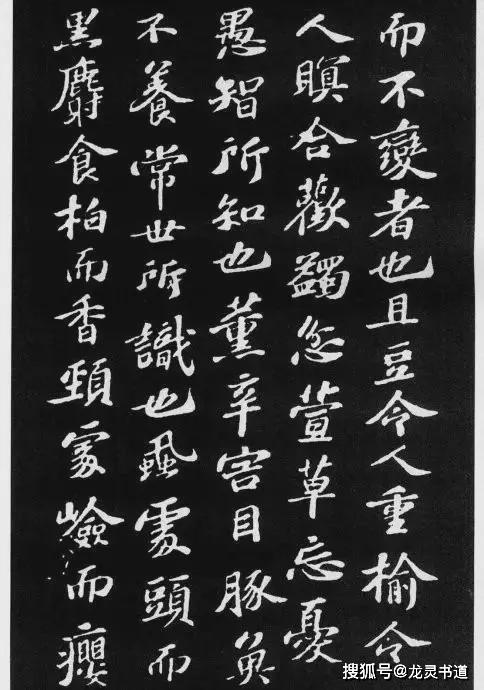 而不變者也且豆令人重榆令
人瞑合歡蠲忿萱草忘憂
愚智所知也薰辛害目豚魚
不養常世所識也虱處頭而
黑麝食柏而香頸處嶮而癭
搜狐号@龙灵书道